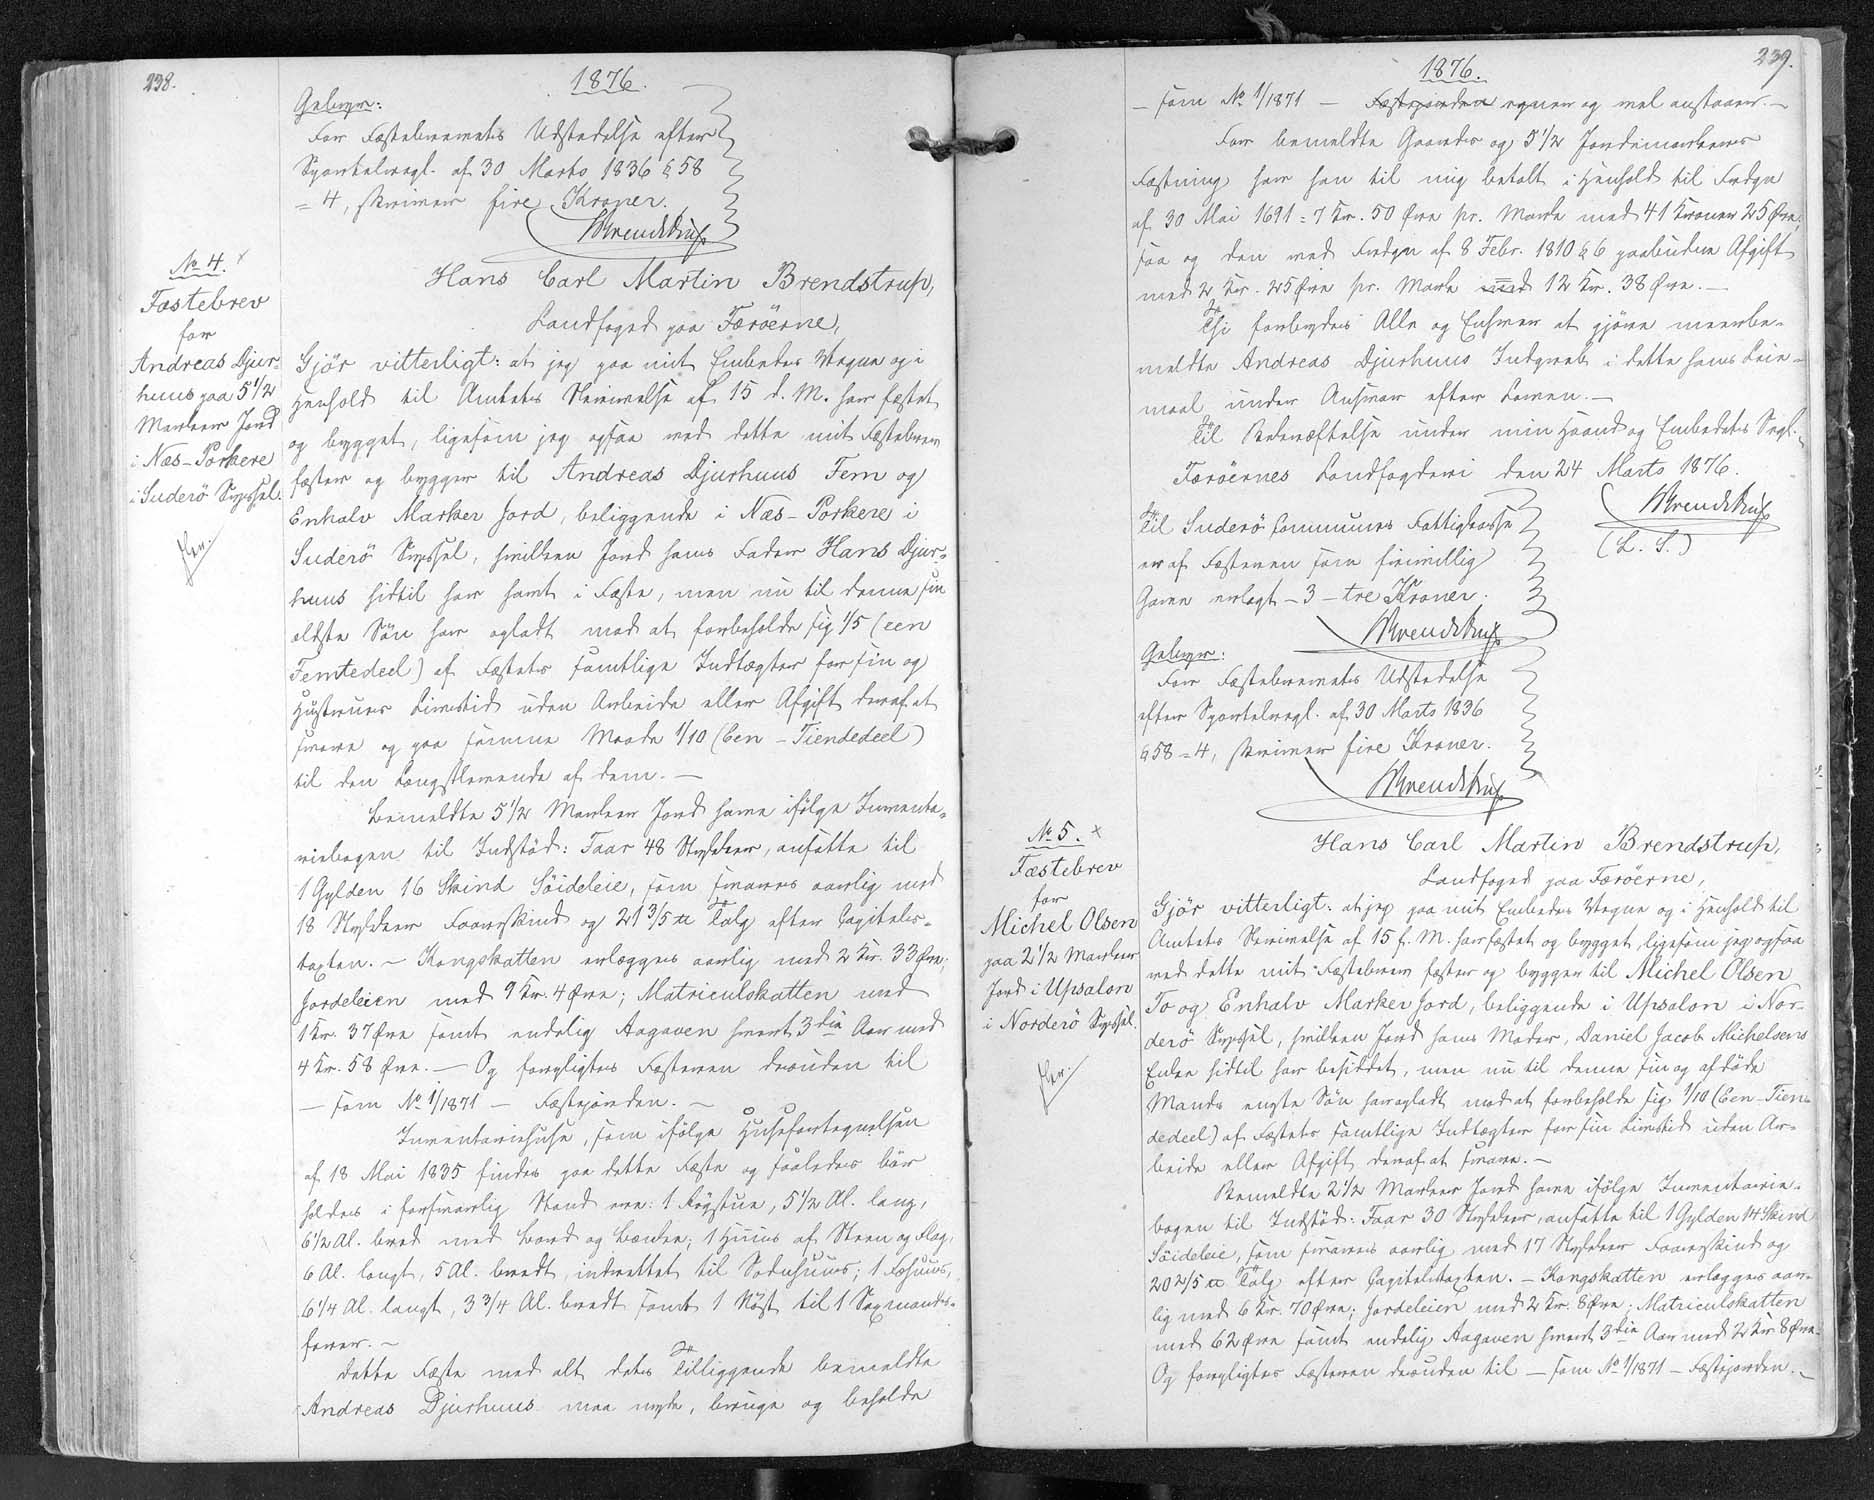 238.
1876.
Gebyr:
For Fæstebrevets Udstedelse efter
Sportelregl. af 30 Marts 1836 § 58
= 4, skriver fire Kroner.
HBrendstrup
No 4. x
Fæstebrev
for
Andreas Djur-
huus paa 5 1/2
Marker Jord
i Næs-Porkere
i Suderö Syssel.
Hans Carl Martin Brendstrup,
Landfoged paa Færöerne,
Gjör vitterligt: at jeg paa mit Embedes Vegne og i
Henhold til Amtets Skrivelse af 15 d. M. har fæstet
og bygget, ligesom jeg ogsaa ved dette mit Fæstebrev
fæster og bygger til Andreas Djurhuus Fem og
Enhalv Marker Jord, beliggende i Næs-Porkere i
Suderö Syssel, hvilken Jord hans Fader Hans Djur-
huus hidtil har havt i Fæste, men nu til denne sin
ældste Sön har opladt mod at forbeholde sig 1/5 (een
Femtedeel) af Fæstets samtlige Indtægter for sin og
Hustrues Livstid uden Arbeide eller Afgift deraf at
svare og paa samme Maade 1/10 (Een-Tiendedeel)
til den Længstlevende af dem. —
Bemeldte 5 1/2 Marker Jord have ifölge Inventa-
riebogen til Indstöd: Faar 48 Stykker, ansatte til
1 Gylden 16 Skind Söideleie, som svares aarlig med
18 Stykker Faareskind og 21 3/5 ℔ Talg efter Capitels-
taxten. — Kongskatten erlægges aarlig med 2 Kr. 33 Öre;
Jordeleien med 9 Kr. 4 Öre; Matriculskatten med
1 Kr. 37 Öre samt endelig Aagaven hvert 3die Aar med
4 Kr. 58 Öre. — Og forpligtes Fæsteren desuden til
— som No 1/1871 — Fæstejorden. —
Inventariehuse, som ifölge Husefortegnelsen
af 18 Mai 1835 findes paa dette Fæste og saaledes bör
holdes i forsvarlig Stand ere: 1 Rögstue, 5 1/2 Al. lang,
6 1/2 Al. bred med Bord og Bænke; 1 Huus af Steen og Flag,
6 Al. langt, 5 Al. bredt, indrettet til Sodnhuus; 1 Fæhuus,
6 1/4 Al. langt, 3 3/4 Al. bredt samt 1 Nöst til 1 Sexmands-
farer. —
Dette Fæste med alt dets Tilliggende bemeldte
Andreas Djurhuus maa nyde, bruge og beholde
239.
1876.
— som No 1/1871 — Fæstejorden egner og vel anstaaer. —
For bemeldte Gaardes og 5 1/2 Jordemarkers
Fæstning har han til mig betalt i Henhold til Frdgn
af 30 Mai 1691 = 7 Kr. 50 Öre pr. Mark med 41 Kroner 25 Öre,
saa og den ved Frdgn af 8 Febr. 1810 § 6 paabudne Afgift
med 2 Kr. 25 Öre pr. Mark med 12 Kr. 38 Öre. —
Thi forbydes Alle og Enhver at gjöre meerbe-
meldte Andreas Djurhuus Indgreb i dette hans Leie-
maal under Ansvar efter Loven. —
Til Bekræftelse under min Haand og Embedets Segl.
Færöernes Landfogderi den 24 Marts 1876.
HBrendstrup
(L. S.)
Til Suderö Communes Fattigkasse
er af Fæsteren som frivillig
Gave erlagt — 3 — tre Kroner.
HBrendstrup
Gebyr:
For Fæstebrevets Udstedelse
efter Sportelregl. af 30 Marts 1836
§ 58 = 4, skriver fire Kroner.
HBrendstrup
No 5. x
Fæstebrev
for
Michel Olsen
paa 2 1/2 Marker
Jord i Upsalon
i Norderö Syssel.
Hans Carl Martin Brendstrup,
Landfoged paa Færöerne,
Gjör vitterligt: at jeg paa mit Embedes Vegne og i Henhold til
Amtets Skrivelse af 15 f. M. har fæstet og bygget, ligesom jeg ogsaa
ved dette mit Fæstebrev fæster og bygger til Michel Olsen
To og Enhalv Marker Jord, beliggende i Upsalon i Nor-
derö Syssel, hvilken Jord hans Moder, Daniel Jacob Michelsens
Enke hidtil har besiddet, men nu til denne sin og afdöde
Mands yngste Sön har opladt mod at forbeholde sig 1/10 (Een-Tien-
dedeel) af Fæstets samtlige Indtægter for sin Livstid uden Ar-
beide eller Afgift deraf at svare. —
Bemeldte 2 1/2 Marker Jord have ifölge Inventarie-
bogen til Indstöd: Faar 30 Stykker, ansatte til 1 Gylden 14 Skind
Söideleie, som svares aarlig med 17 Stykker Faareskind og
20 2/5 ℔ Talg efter Capitelstaxten. — Kongskatten erlægges aar-
lig med 6 Kr. 70 Öre; Jordeleien med 2 Kr. 8 Öre; Matriculskatten
med 62 Öre samt endelig Aagaven hvert 3die Aar med 2 Kr. 8 Öre.
Og forpligtes Fæsteren desuden til — som No 1/1871 — Fæstejorden. —